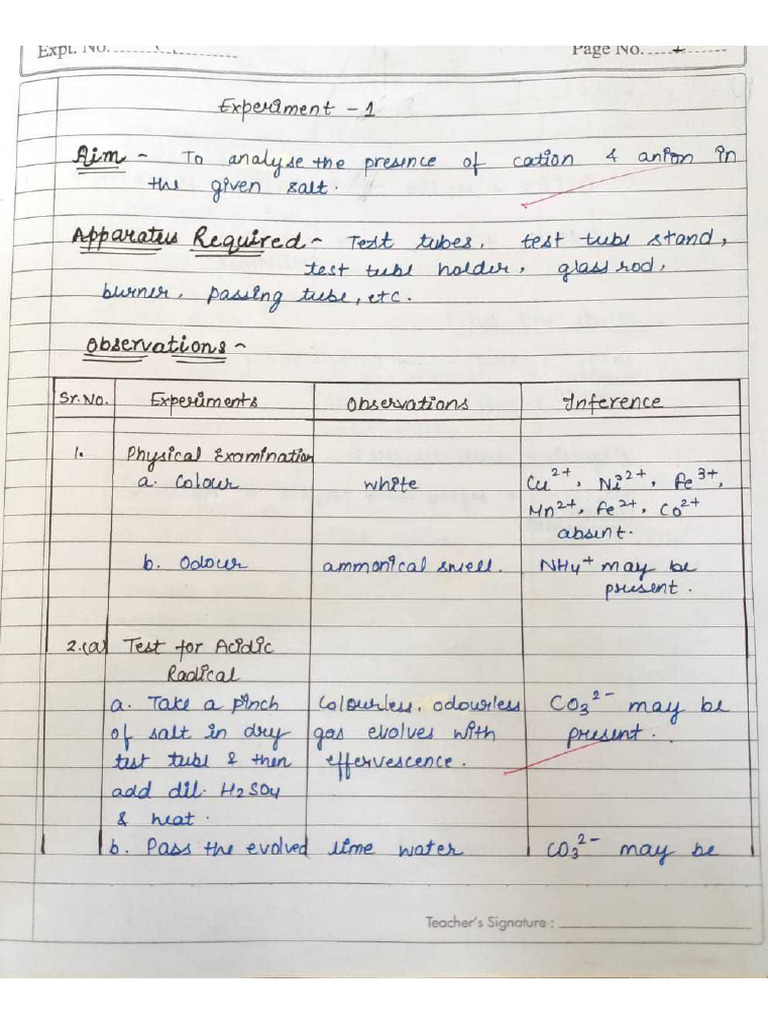 Expt. No.
Page No. 1
Experiment - 1
Aim - To analyse the presence of cation & anion in
the given salt.
Apparatus Required - Test tubes, test tube stand,
test tube holder, glass rod,
burner, passing tube, etc.
Observations -
Sr. No. Experiments Observations Inference
1. Physical Examination
a. Colour white Cu²⁺, Ni²⁺, Fe³⁺,
Mn²⁺, Fe²⁺, Co²⁺
absent.
b. Odour ammonical smell. NH₄⁺ may be
present.
2.(a) Test for Acidic
Radical
a. Take a pinch Colourless, odourless CO₃²⁻ may be
of salt in dry gas evolves with present.
test tube & then effervescence.
add dil. H₂SO₄
& heat.
b. Pass the evolved lime water CO₃²⁻ may be
Teacher's Signature :